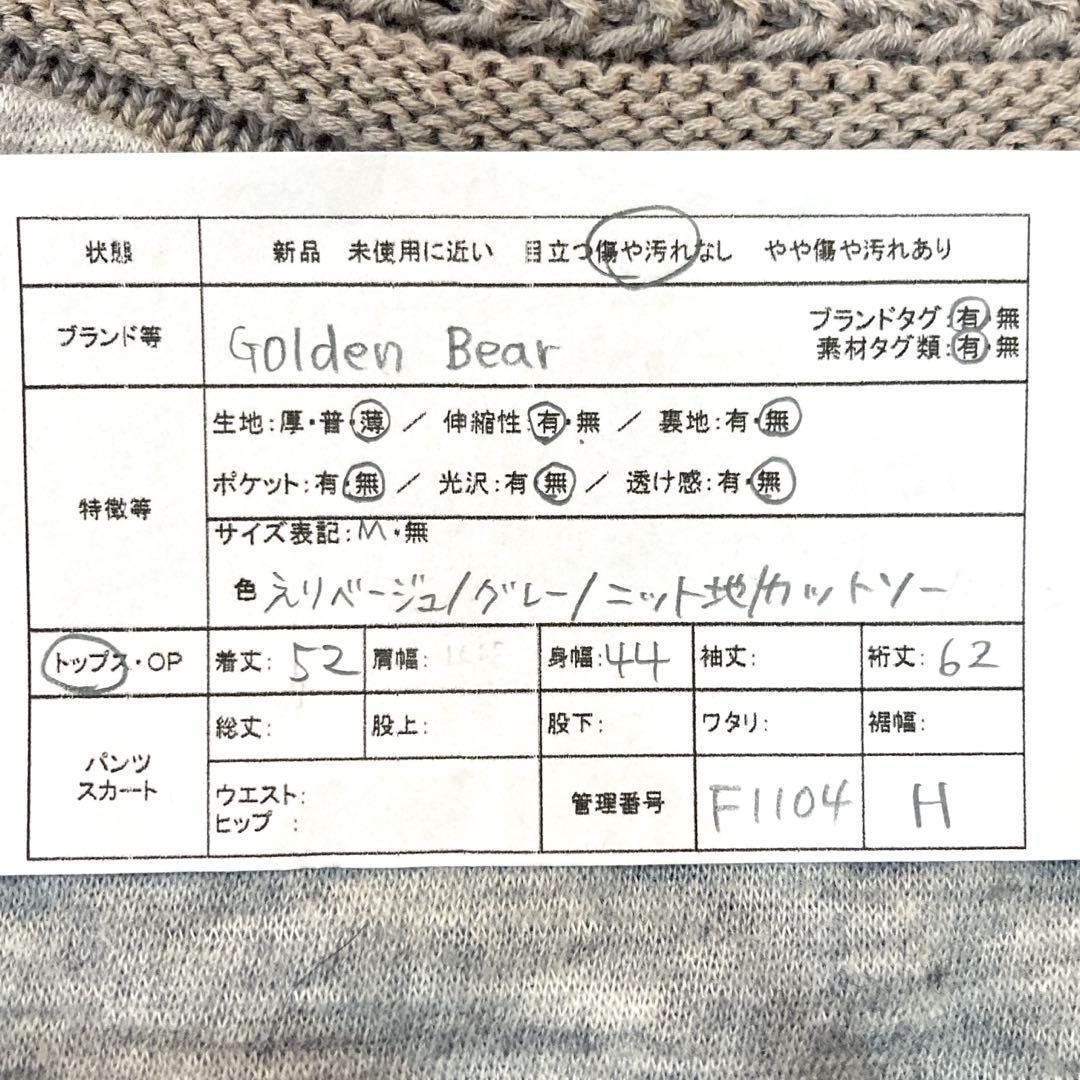 状態 新品 未使用に近い 目立つ傷や汚れなし やや傷や汚れあり
ブランド等 Golden Bear ブランドタグ:有・無
素材タグ類:有・無
特徴等 生地:厚・普・薄 / 伸縮性:有・無 / 裏地:有・無
ポケット:有・無 / 光沢:有・無 / 透け感:有・無
サイズ表記:M・無
色 えりベージュ/グレー/ニット地/カットソー
トップス・OP 着丈:52 肩幅: 身幅:44 袖丈: 裄丈:62
パンツ スカート 総丈: 股上: 股下: ワタリ: 裾幅:
ウエスト:
ヒップ : 管理番号 F1104 H